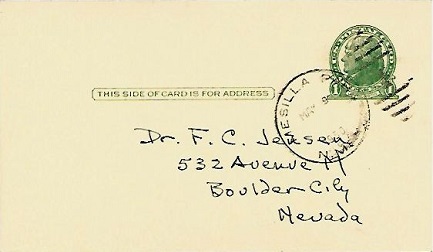 THIS SIDE OF CARD IS FOR ADDRESS
MESILLA
MAY
N.M.
1 1
Dr. F. C. Jensen
532 Avenue M
Boulder City
Nevada